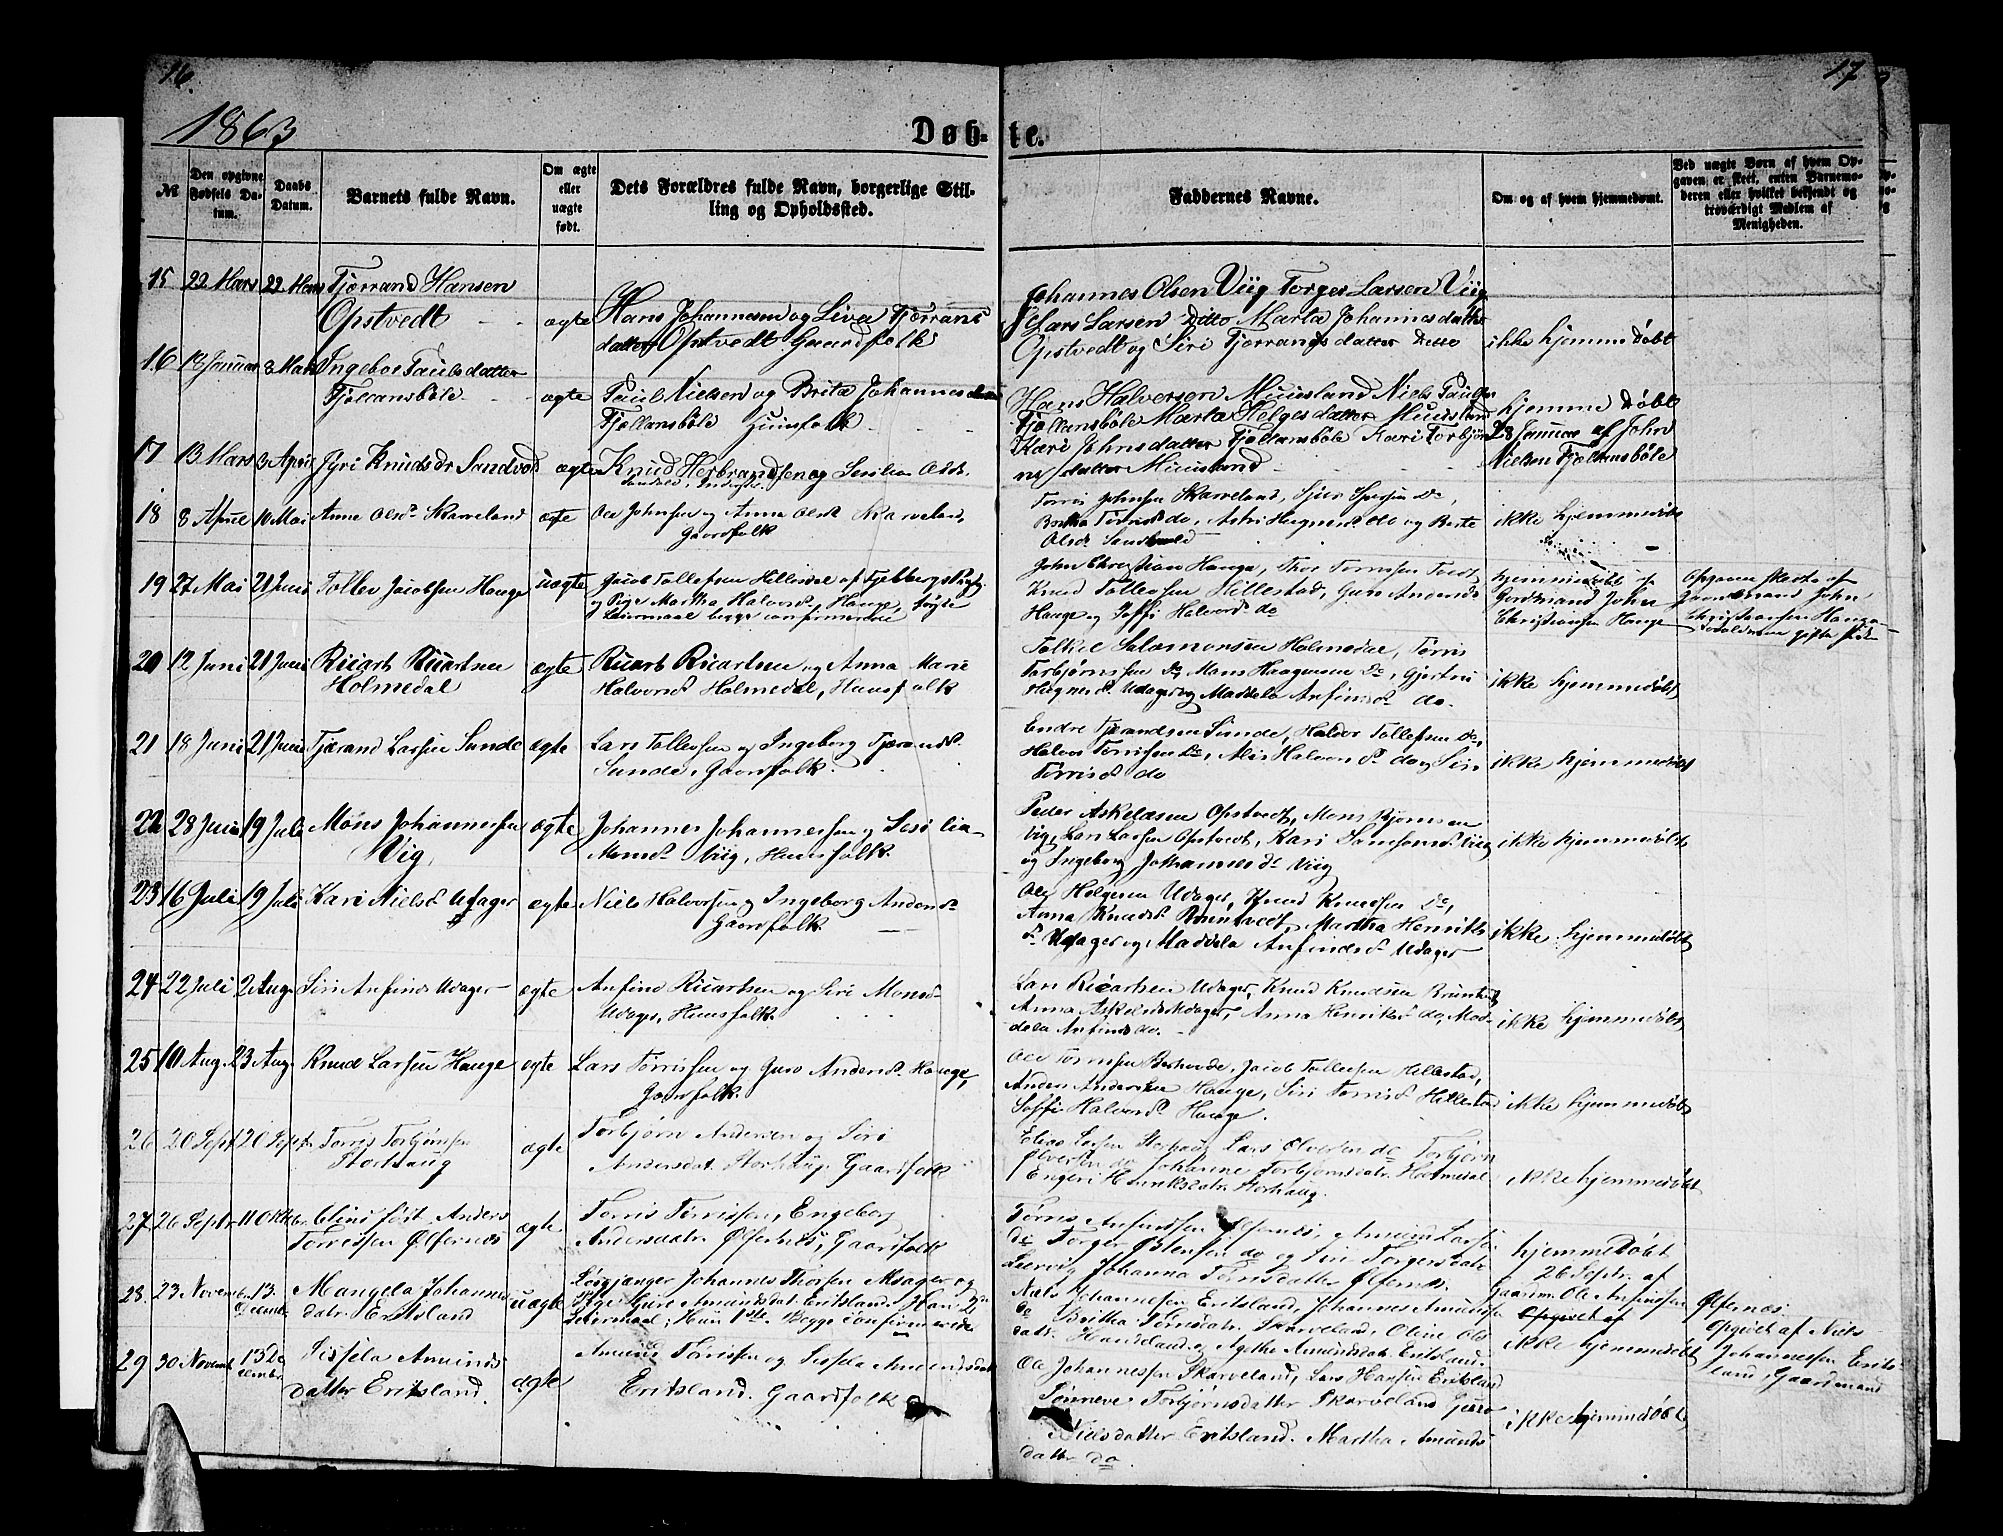 16.
17
1863
Døb-
te.
№
Den opgivne Fødsels Datum.
Daabs Datum.
Barnets fulde Navn.
Om ægte eller uægte født.
Dets Forældres fulde Navn, borgerlige Stilling og Opholdssted.
Faddernes Navne.
Om og af hvem hjemmedøbt.
Ved uægte Børn af hvem Opgaven er skett, enten Barnemoderen eller hvilket bekjendt og troværdigt Medlem af Menigheden.
15 22 Mars 22 Mars Tjærrand Hansen
Opstvedt ægte
Hans Johannesen og Liva Tjærrans
datter Opstvedt Gaardfolk
Johannes Olsen Viig Torger Larsen Viig
Lars Larsen Ditto Marta Johannesdatter
Opstvedt og Siri Tjærrangsdatter Ditto
ikke hjemme døbt
16 18 Januar 8 Mars Ingebor Paulsdatter
Fjællansbøle ægte
Paul Nielsen og Brita Johannesdatter
Fjællansbøle Huusfolk
Hans Halversen Muusland Niels Paulsen
Fjællansbøle Marta Helgesdatter Muusland
Kari Johnsdatter Fjællansbøle Kari Torbjør
nsdatter Muusland
hjemme døbt
28 Januar af John
Nielsen Fjællansbøle
17 13 Mars 3 April Jyri Knudsdr Sandvol ægte
Knud Herbrandsen og Sesilia Olsdr
18 8 April 10 Mai Anna Olsdr Skarveland ægte
Ole Johnsen og Anna Olsdr Skarveland,
Gaardfolk
Tørris Johnsen Skarveland, Sjur Do,
Brita Torrisdr do, Astri do og Berte
Olsdr
ikke hjemmedøbt
19 27 Mai 21 Juni Tollev Jacobsen Hauge uægte
Jacob Tollefsen Hillestad af Fjelbergs Prgj
og Pige Martha Halvorsdr Hauge,
Leiermaal begge confirmerede
John Christian Hauge, Thor Tørrissen Tvedt,
Knud Tollevsen Hillestad, Guro Andersdr
Hauge og Soffi Halvorsdr do
hjemmedøbt af
Gordmand John
Christiansen Hauge
Opgaven skede af
Gaardmand John
Christiansen Hauge
20 12 Juni 21 Juni Ricart Ricartsen
Holmedal ægte
Ricart Ricartsen og Anna Marie
Halvorsdr Holmedal, Huusfolk
Tolkel Salamonsen Holmedal, Tørris
Torbjørnsen Do, Mons Haagensen Do, Gjertru
Udager og Maddela Anfinsdr do.
ikke hjemmedøbt
21 18 Juni 21 Juni Tjærand Larsen Sunde ægte
Lars Tollevsen og Ingeborg Tjærandsdr
Sunde, Gaardfolk.
Endre Tjærandsen Sunde, Halvor Tollefsen Do,
Halvor Tørrissen Do, Alis Halvorsdr do og Siri
Tørrisdr do
ikke hjemmedøbt
22 28 Juni 19 Juli Mons Johannessen
Vig, ægte
Johannes Johannessen og Sesilia
Monsdr Viig, Huusfolk.
Peder Askelsen Opstvedt, Mons Bjørnsen
Vig, Lars Larsen Opstvedt, Kari Samsonsdr Viig
og Ingeborg Johannesdr Viig
ikke hjemmedøbt
23 16 Juli 19 Juli Kari Nielsdr Udager ægte
Niels Halvorsen og Ingeborg Andersdr
Gaardfolk.
Ole Helgesen Udager, Knud Knudsen Do,
Anna Knudsdr Bruntvedt, Martha Henriks
dr Udager og Maddela Anfindsdr Udager
ikke hjemmedøbt
24 22 Juli 2 Aug. Siri Anfinds Udager ægte
Anfind Ricartsen og Siri Monsdr
Udager, Huusfolk.
Lars Ricartsen Udager, Knud Knudsen Bruntvedt
Anna Askelsdr Udager, Anna Henriksdr do, Mad-
dela Anfinsdr do.
ikke hjemmedøbt
25 10 Aug. 23 Aug. Knud Larsen Hauge ægte
Lars Tørrissen og Guro Andersdr Hauge,
Gaardfolk.
Ole Tørrissen, Jacob Tollevsen Hillestad,
Anders Andersen Hauge, Siri Torrisdr Hillestad
Soffi Halvorsdr Hauge.
ikke hjemmedøbt
26 20 Sept 20 Septr. Torris Torbjørnsen
Storhaug ægte
Torbjørn Andersen og Siri
Andersdatr. Storhaug, Gaardfolk
Elias Larsen Storhaug, Lars Elversen do Torbjørn
Elversen do Johanne Torbjørnsdatr. Holmedal
Engeri Henriksdatr. Storhaug.
ikke hjemmedøbt
27 26 Septr 11 Oktbr. Anders
Torrissen Ølfernes ægte
Torris Torrissen, Engeborg
Andersdatr. Ølfernes, Gaardfolk
Tørris Anfindsen Ølfernes, Amund Larsen
do Torger Østensen do og Siri Torgersdatr.
Leervig Johanna Torrisdatter Ølfernes.
hjemmedøbt
26 Septr. af
Gaardm. Ole Anfindsen
Ølfernes
28. 23 Novembr. 13. Decembr Mangela Johannes
datr. Eritsland uægte
Løsgjænger Johannes Thorsen Msager og
Pige Guro Amundsdat. Eritsland. Han 2den
Leiermaal, Hun 1ste. Begge confirmerede
Nils Johannesen Eritsland, Johannes Amundsen
do Britha Torrisdatr. Skarveland, Oline Ols
datr. Handeland og Agthe Amundsdatr Eritsland.
Opgivet af
ikke hjemmedøbt
Opgivet af Niels
Johannessen Erits
land, Gaardmand
29 30 Novemb. 13 De
cembr Sissela Amunds
datter Eritsland. ægte
Amund Tørrissen og Sissela Amundsdatr
Eritsland. Gaardfolk
Ole Johannessen Skarveland, Lars Hansen Eritsland
Sønneve Torbjørnsdatter Skarveland Guro
Nilsdatter Eritsland. Martha Amunds
datter do.
ikke hjemmedøbt